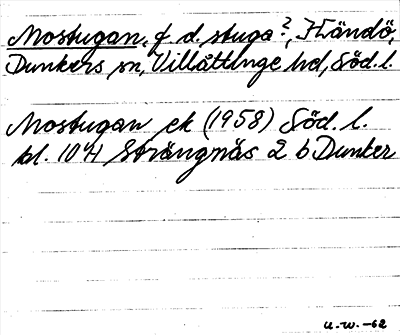 Mostugan, f. d. stuga?, Händö,
Dunkers sn, Villåttinge hd, Söd. l.
Mostugan ek (1958) Söd. l.
bl. 10 H Strängnäs 2 b Dunker
u.w.-62